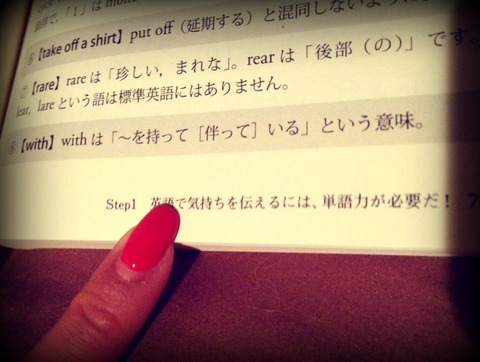 語で、「1」は mon
⑥【take off a shirt】put off（延期する）と混同しないように
⑦【rare】rare は「珍しい，まれな」。rear は「後部（の）」です。
lear, lare という語は標準英語にはありません。
⑧【with】with は「～を持って［伴って］いる」という意味。
Step1 英語で気持ちを伝えるには、単語力が必要だ！ 7